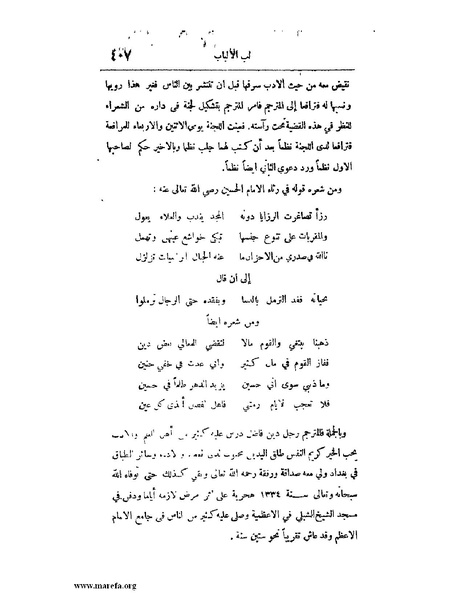 لب الألباب ٤٠٧
نقيض معه من حيث الادب سرقها قبل ان تنتشر بين الناس فغير هذا رويها
ونسبها له فترافعا إلى المترجم فامر المترجم بتشكيل لجنة في داره من الشعراء
للنظر في هذه القضية تحت رآسته. فعينت اللجنة يومي الاثنين والاربعاء للمرافعة
فترافعا لدى اللجنة نظماً بعد أن كتب لهما جلب نظما وبالاخير حكم لصاحبها
الاول نظماً ورد دعوى الثاني ايضاً نظماً.
ومن شعره قوله في رثاء الامام الحسين رضي الله تعالى عنه :
رزأ تصاغرت الرزايا دونه المجد يندب والعلاء يعول
والمقربات على تنوع جنسها تبكي خواشع عينهن وتهمل
تالله في صدري من الاحزان ما عنه الجبال الراسيات تزلزل
إلى أن قال
بحياته فقد الترمل بالنسا وبفقده حتى الرجال ترملوا
ومن شعره ايضاً
ذهبنا يبتغي والقوم مالا لنقضي المعالي بعض دين
ففاز القوم في مال كثير واني عدت في خفي حنين
وما ذنبي سوى اني حسين يزيد الدهر ظلماً في حسين
فلا تعجب لأيام رمتني فاهل الفضل أقذى كل عين
وبالجملة فالمترجم رجل دين فاضل درس عليه كثير من أهل العلم والادب
يحب الخير كريم النفس طلق اليدين محبوب لدى وسائر الطبقات
في بغداد ولي معه صداقة ورفقة رحمه الله تعالى وبقي كذلك حتى توفاه الله
سبحانه وتعالى سنة ١٣٣٤ هجرية على اثر مرض لازمه أياما ودفن في
مسجد الشيخ الشبلي في الاعظمية وصلى عليه كثير من الناس في جامع الامام
الاعظم وقد عاش تقريباً نحو ستين سنة .
www.marefa.org